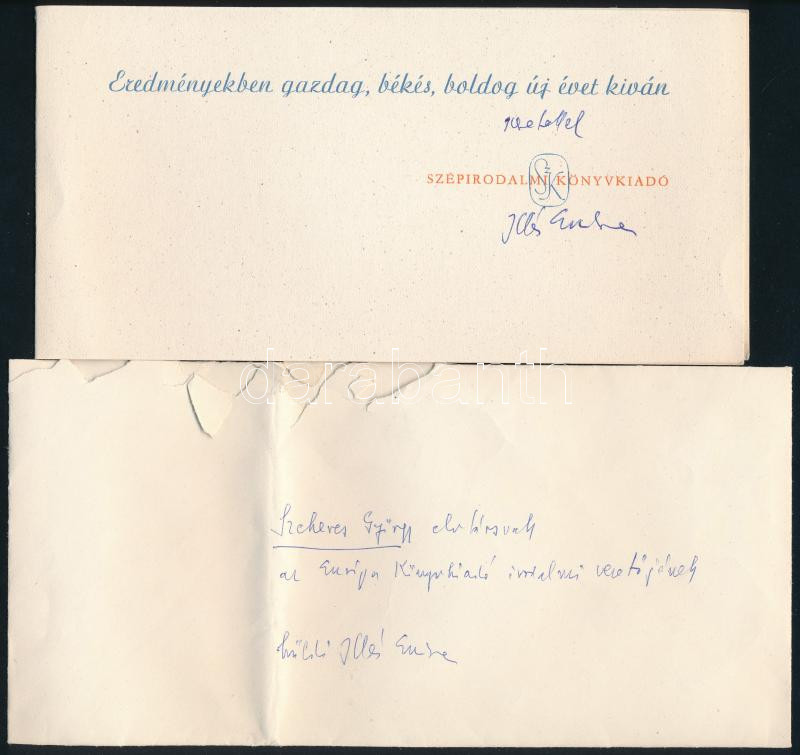 Eredményekben gazdag, békés, boldog új évet kiván
szeretettel
SZÉPIRODALMI KÖNYVKIADÓ
SzK
Illés Endre
darabanth
Szekeres György elvtársnak
az Európa Könyvkiadó irodalmi vezetőjének
küldi Illés Endre